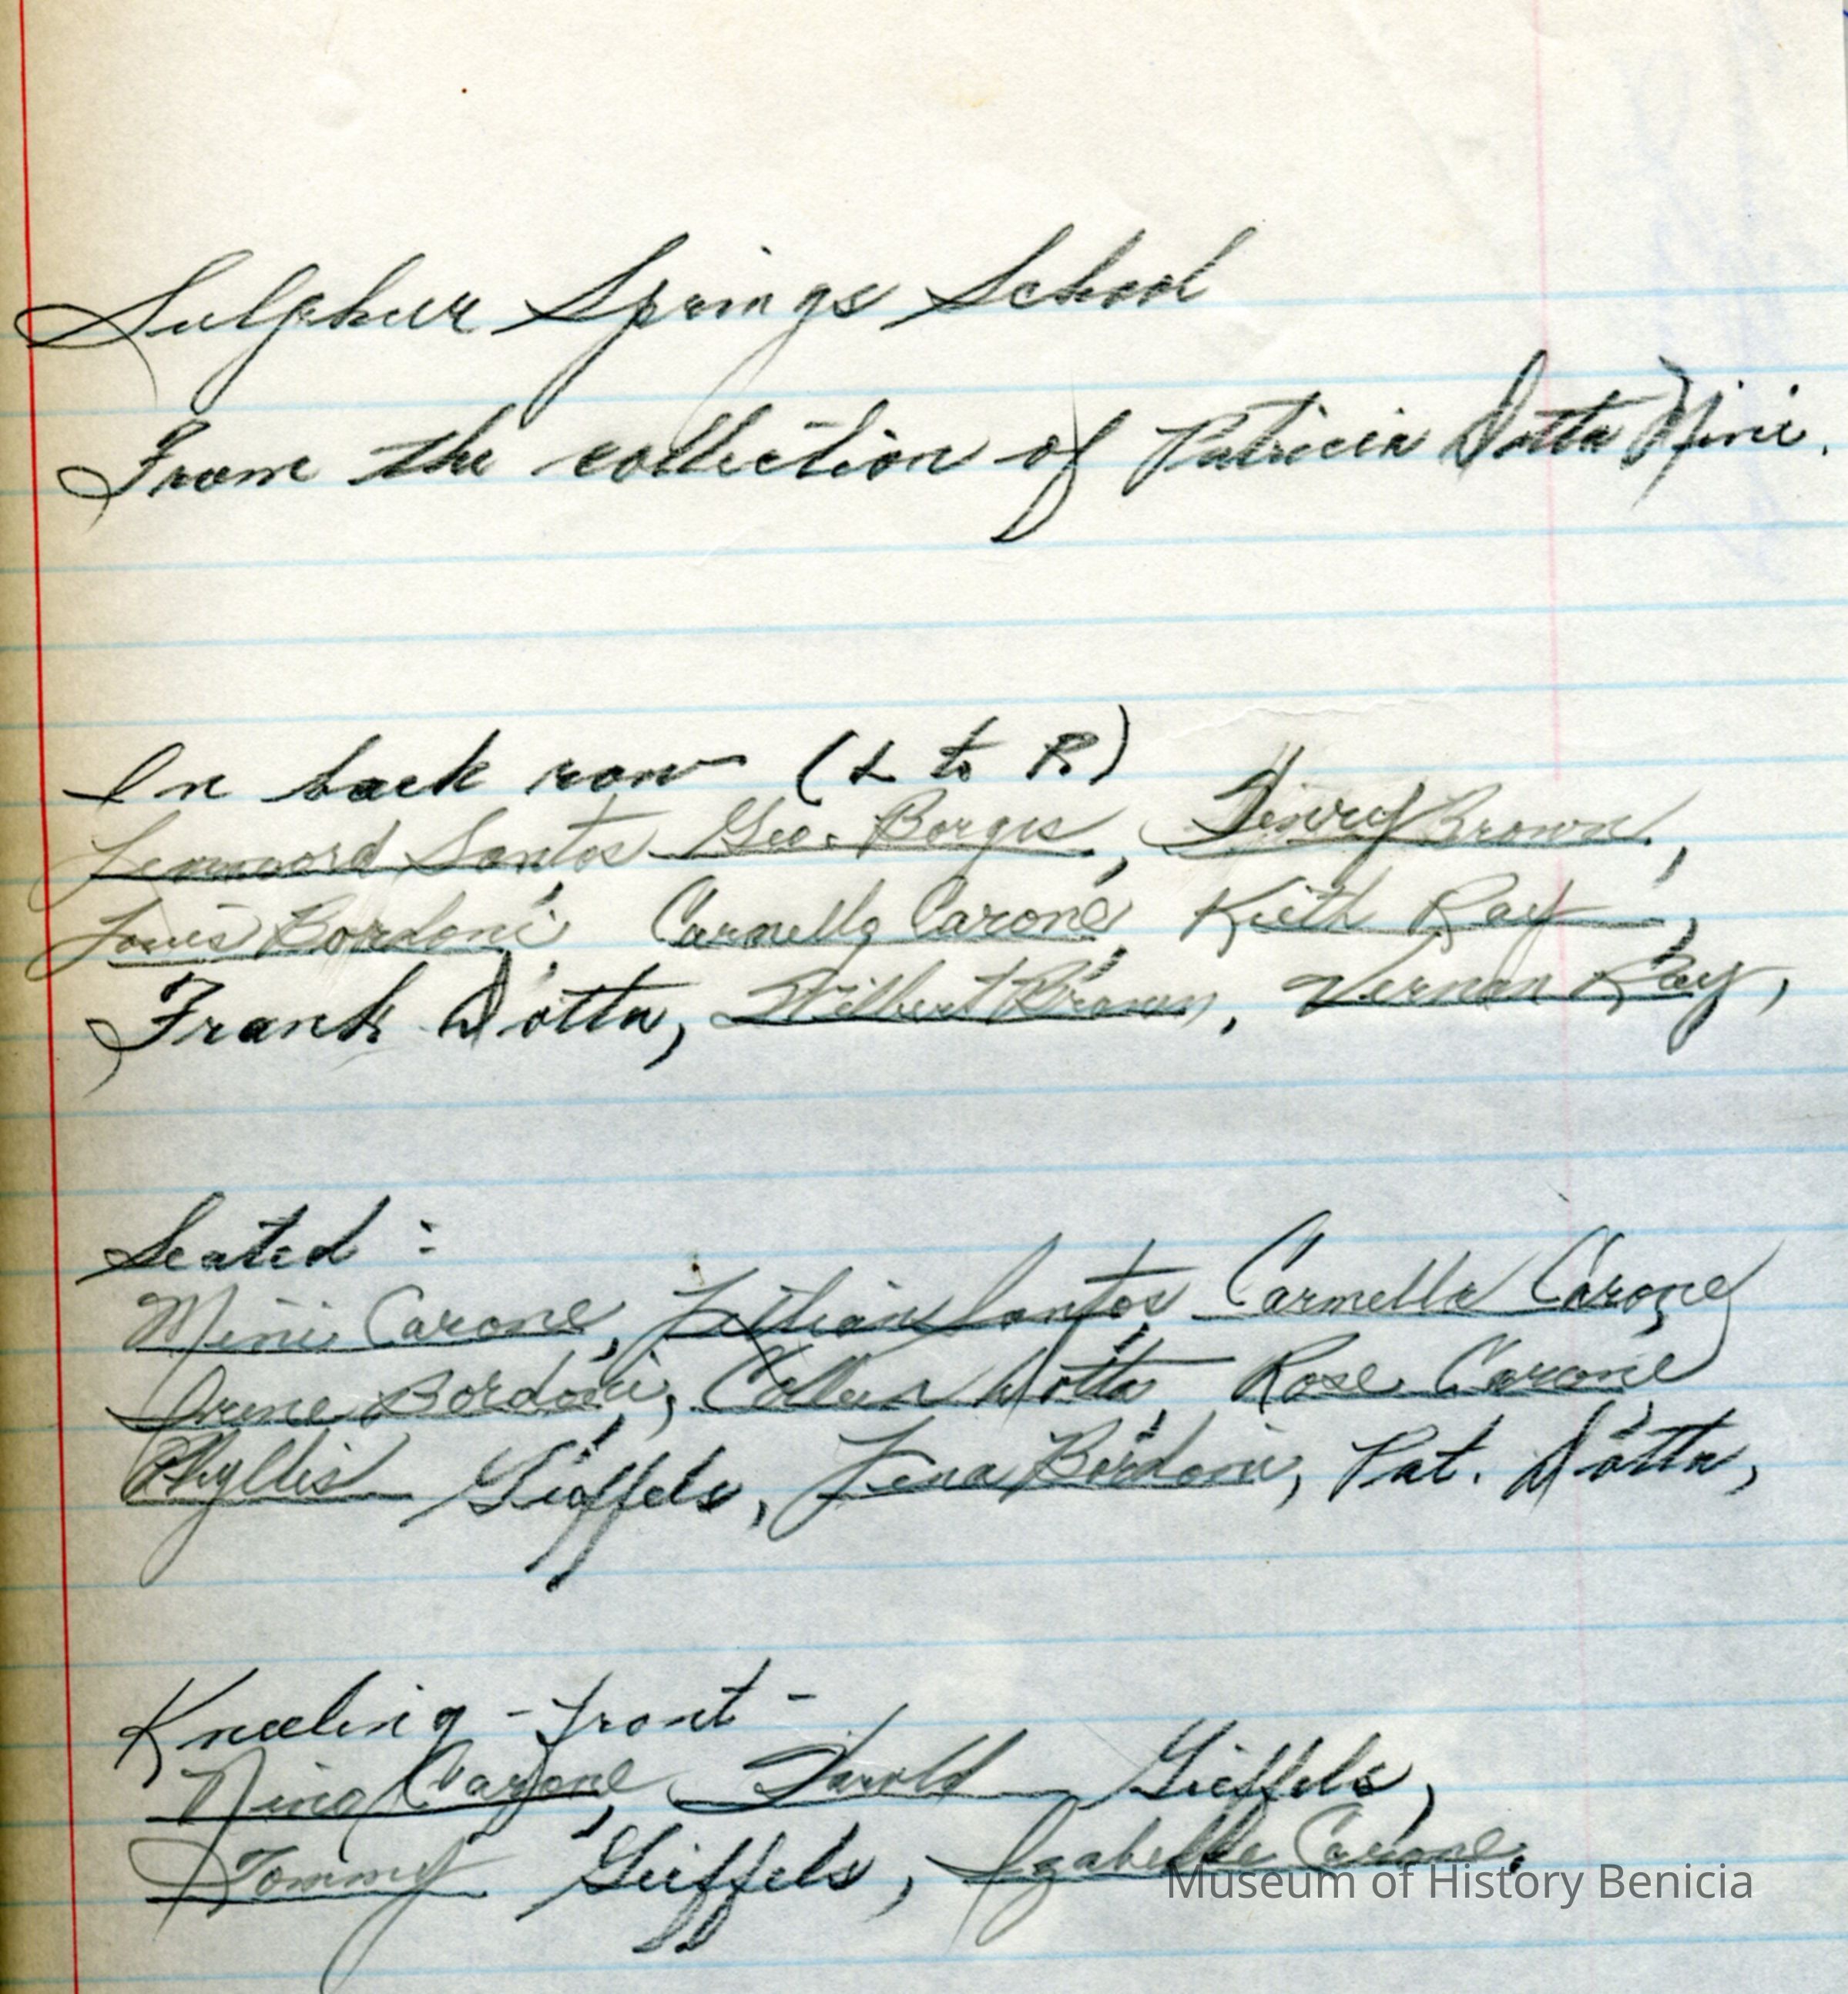 Sulphur Springs School
From the collection of Patricia Dotta Mini.
In back row (L to R)
Lennoord Santos, Geo. Borges, Henry Brown,
Louis Bordoni, Carmello Carone, Keith Ray,
Frank Dotta, Wilbert Brown, Vernon Ray,
Seated :
Mini Carone, Lillian Santos, Carmella Carone,
Irene Bordoni, Colleen Dotta, Rose Carone,
Phyllis Gieffels, Lena Bordoni, Pat. Dotta,
Kneeling - front -
Nino Carone, Harold Gieffels,
Tommy Gieffels, Izabelle Carone.
Museum of History Benicia